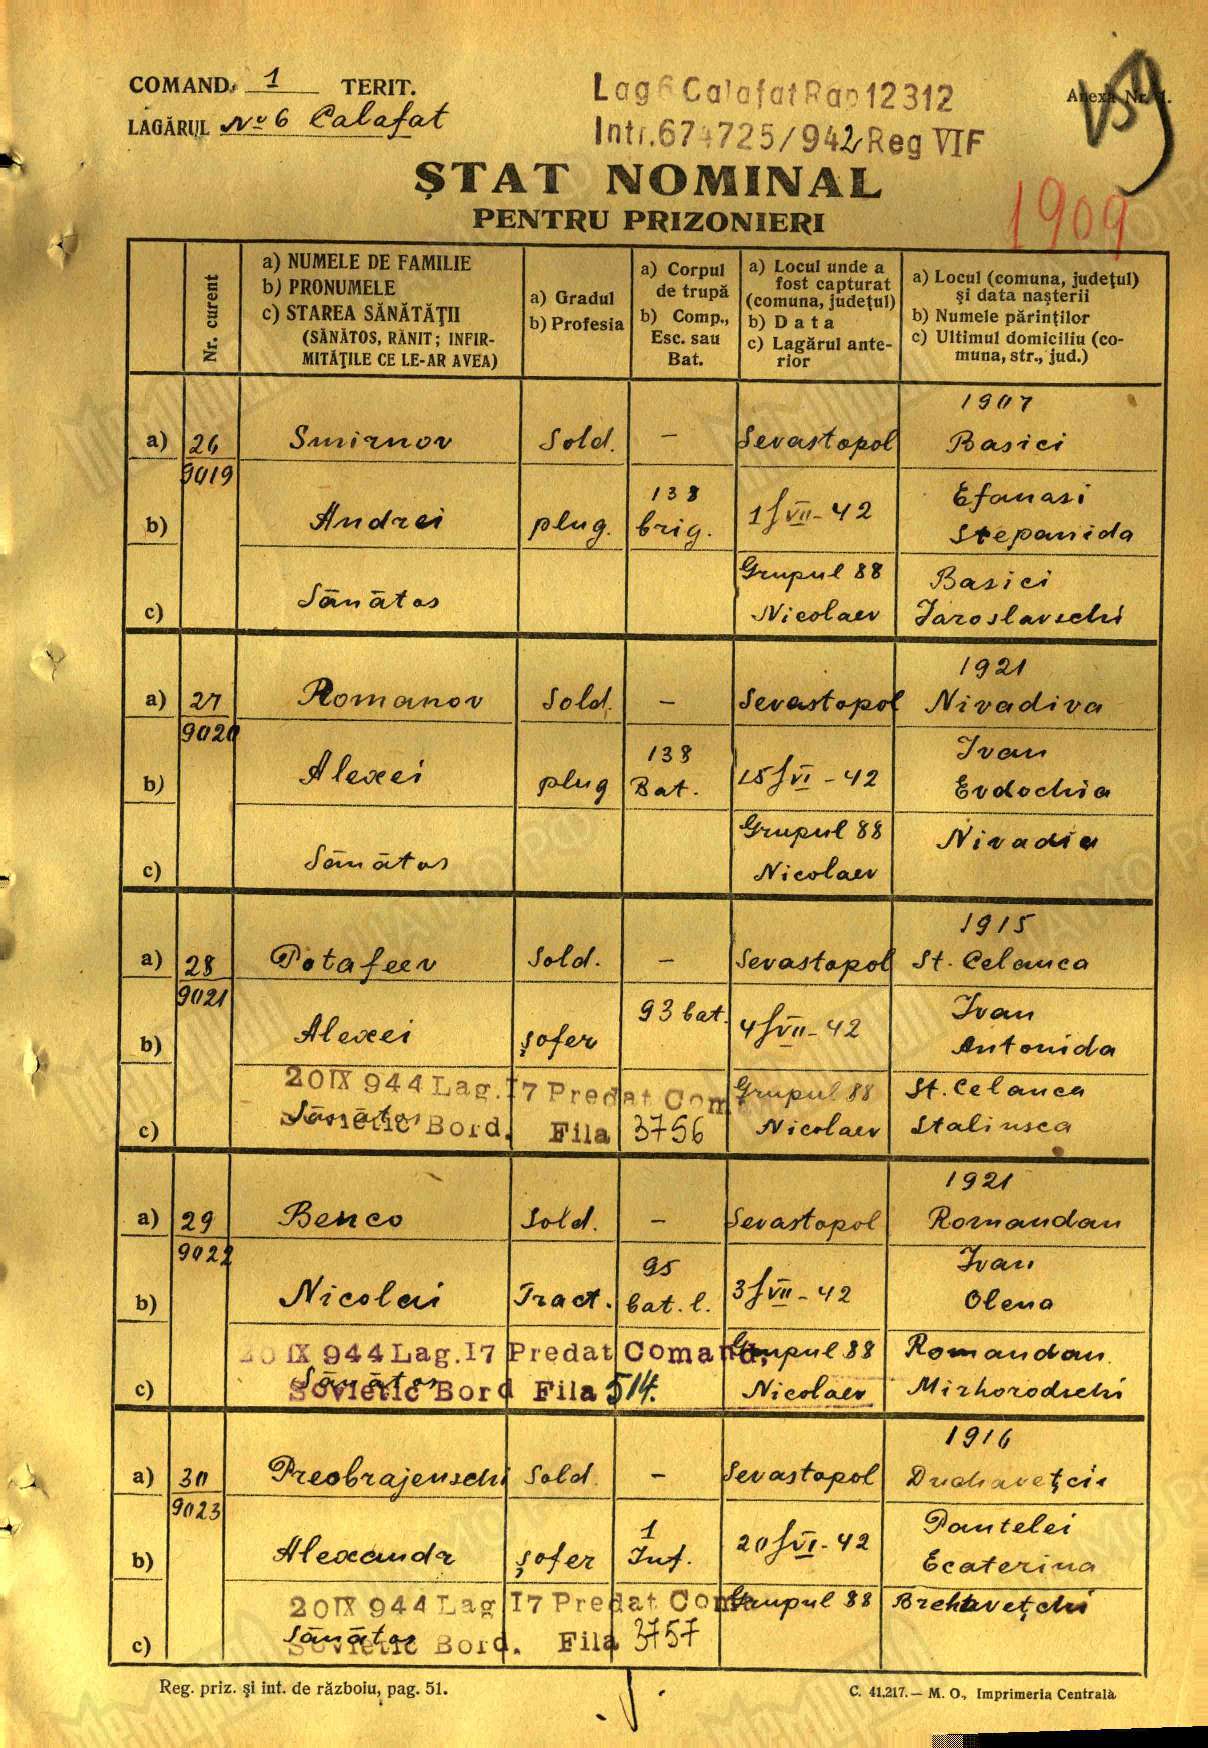 COMAND. 1 TERIT.
LAGĂRUL No 6 Calafat
Lag 6 Calafat Rap 12312
Intr. 674725/942 Reg VIF
Anexa Nr. 1.
ŞTAT NOMINAL
PENTRU PRIZONIERI
1909
Nr. curent
a) NUMELE DE FAMILIE
b) PRONUMELE
c) STAREA SĂNĂTĂŢII
(SĂNĂTOS, RĂNIT; INFIR-
MITĂŢILE CE LE-AR AVEA)
a) Gradul
b) Profesia
a) Corpul
de trupă
b) Comp.,
Esc. sau
Bat.
a) Locul unde a
fost capturat
(comuna, judeţul)
b) Data
c) Lagărul ante-
rior
a) Locul (comuna, judeţul)
şi data naşterii
b) Numele părinţilor
c) Ultimul domiciliu (co-
muna, str., jud.)
1907
a) 26 Smirnov Sold. — Sevastopol Basici
9019
b) Andrei plug. 138 brig. 1/VII-42 Efanasi
Stepanida
c) Sănătos Grupul 88 Basici
Nicolaev Iaroslavschi
1921
a) 27 Romanov Sold. — Sevastopol Nivadiva
9020
b) Alexei plug 138 Bat. 15/VI-42 Ivan
Evdochia
c) Sănătos Grupul 88 Nivadia
Nicolaev
1915
a) 28 Potafeev Sold. — Sevastopol St. Celanca
9021
b) Alexei şofer 93 bat. 4/VII-42 Ivan
Antonida
20 IX 944 Lag. I7 Predat Com. Grupul 88 St. Celanca
c) Sănătos Nicolaev Stalinsca
Sovietic Bord. Fila 3756
1921
a) 29 Benco Sold. — Sevastopol Romandan
9022
b) Nicolai Tract. 95 bat. l. 3/VII-42 Ivan
Olena
20 IX 944 Lag. I7 Predat Comand. Grupul 88 Romandan
c) Sănătos Nicolaev Mirhorodschi
Sovietic Bord Fila 514.
1916
a) 30 Preobrajenschi Sold. — Sevastopol
9023
b) Alexandr şofer 1 Inf. 20/VI-42 Pantelei
Ecaterina
20 IX 944 Lag I7 Predat Com. Grupul 88
c) Sănătos
Sovietic Bord. Fila 3757
Reg. priz. şi int. de războiu, pag. 51.
C. 41.217.— M. O., Imprimeria Centrală